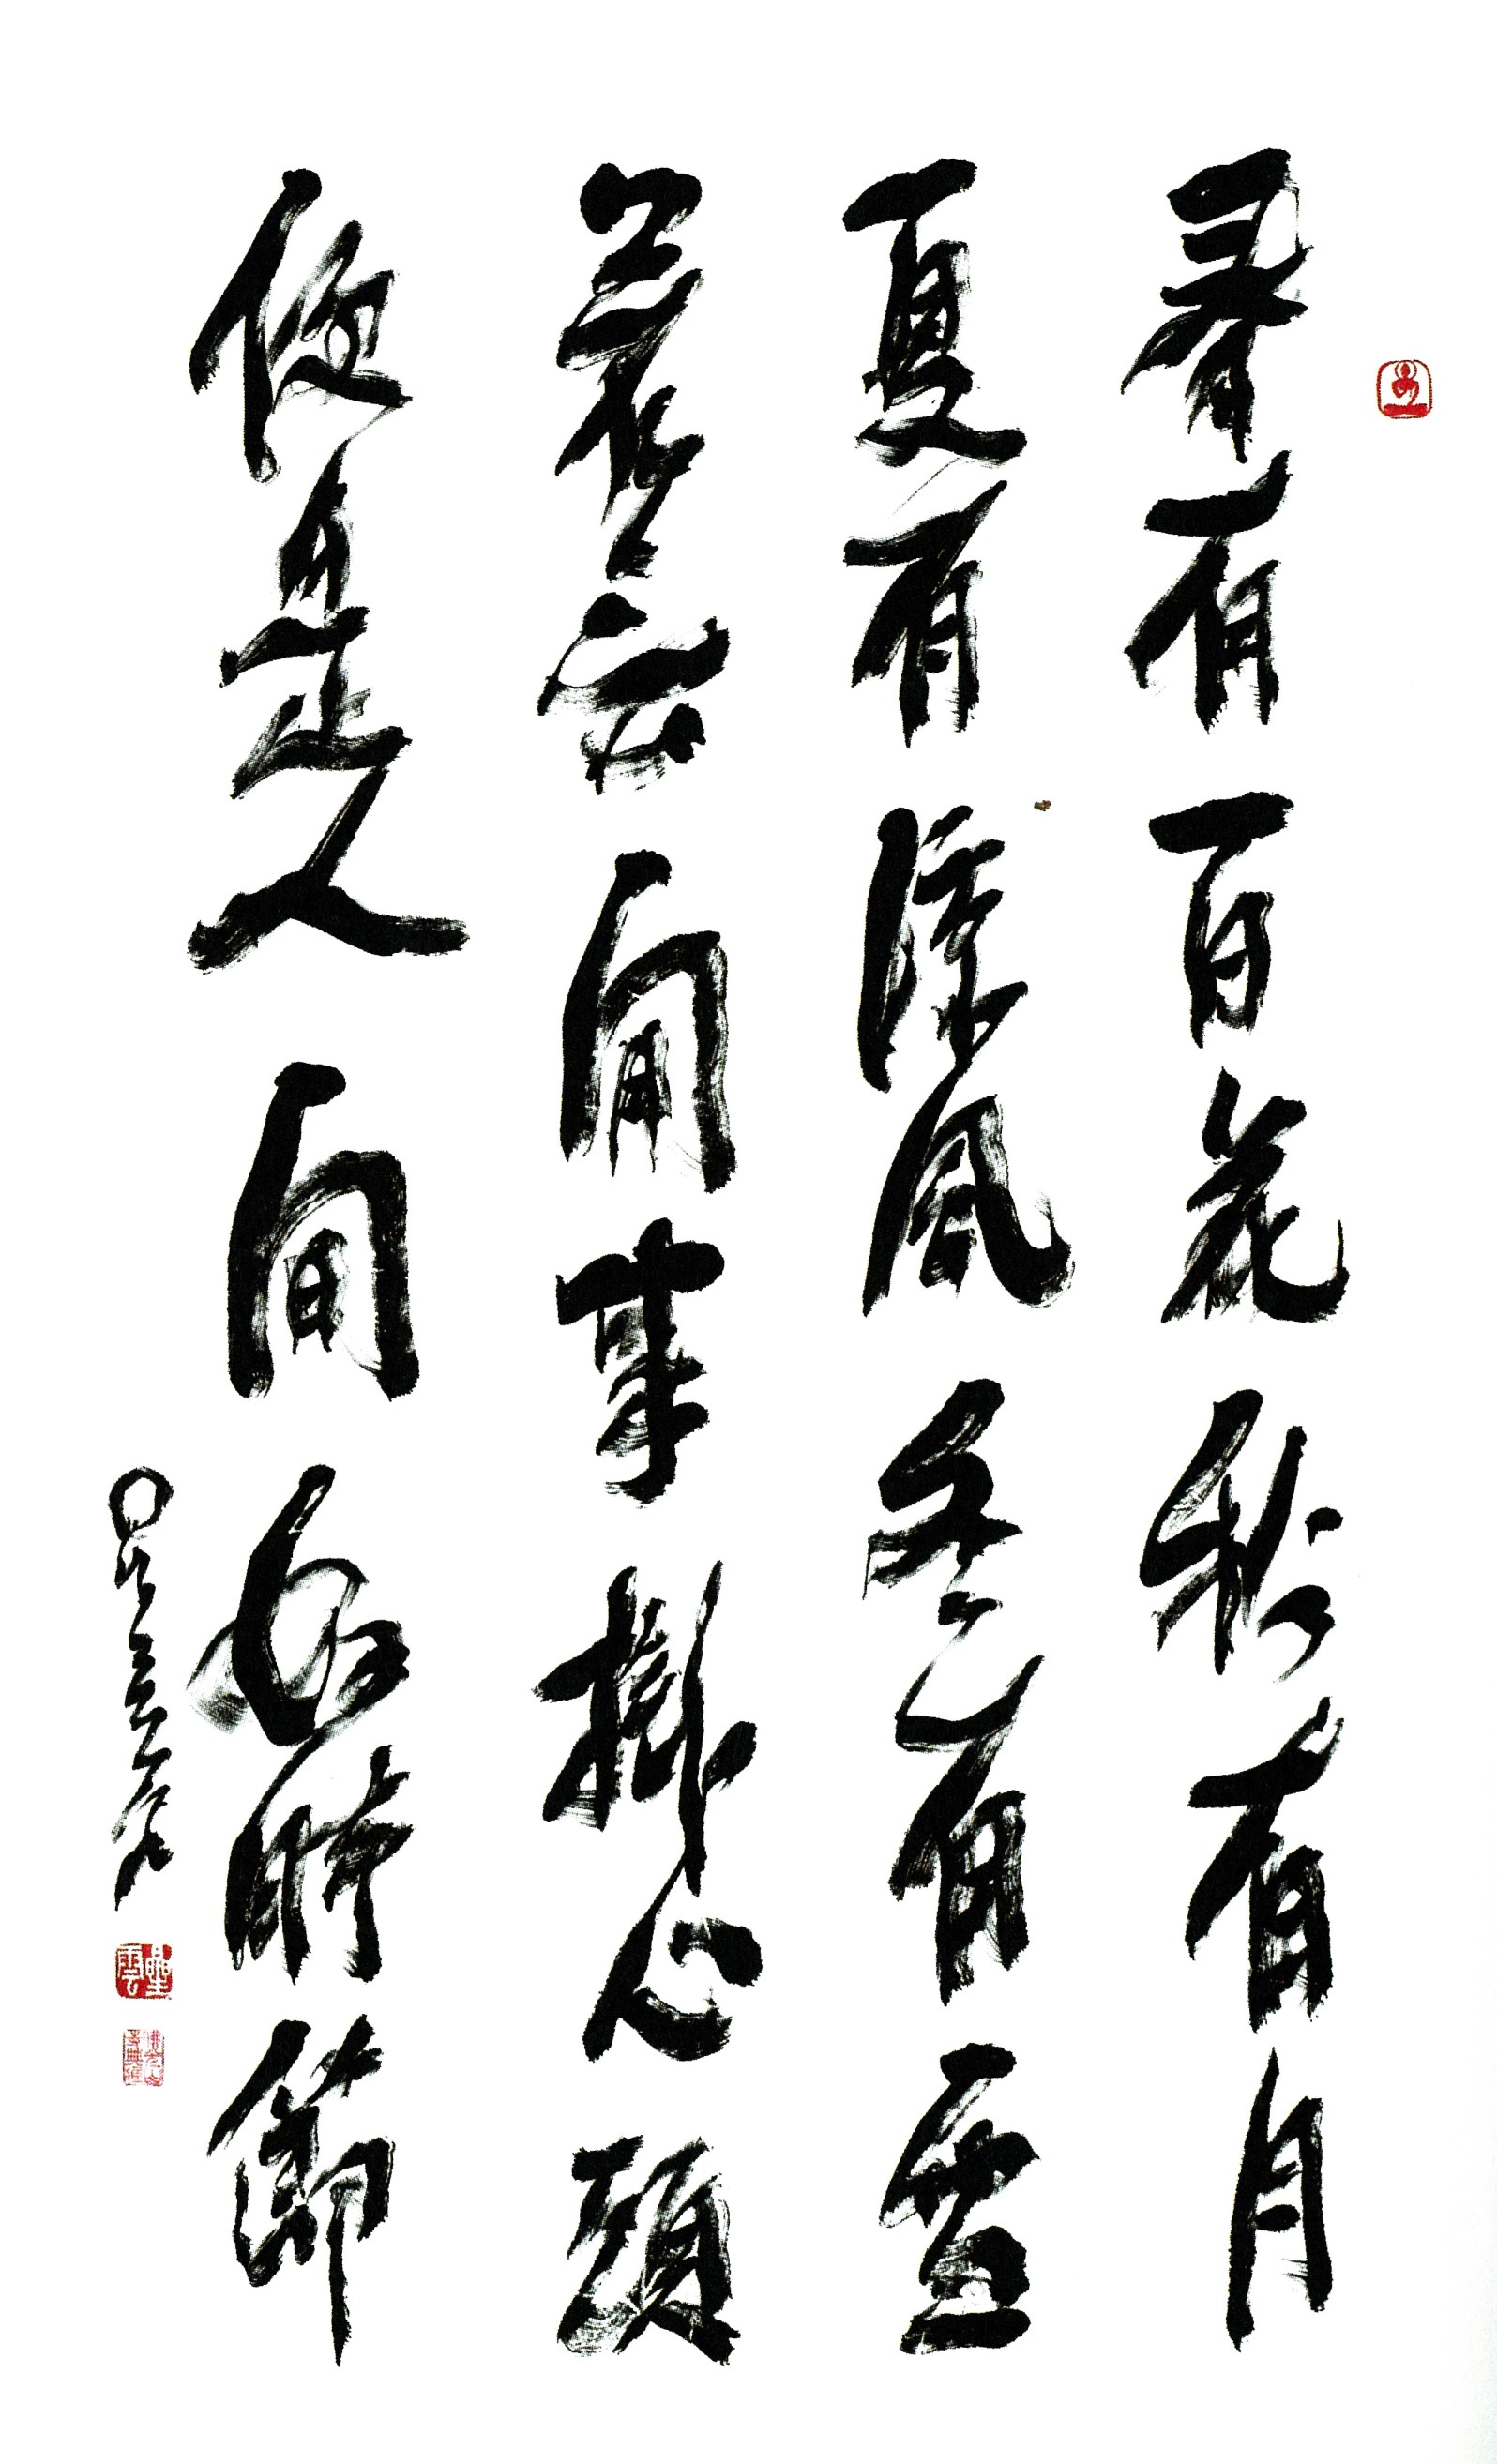 春有百花秋有月
夏有涼風冬有雪
若無閒事掛心頭
便是人間好時節
星雲